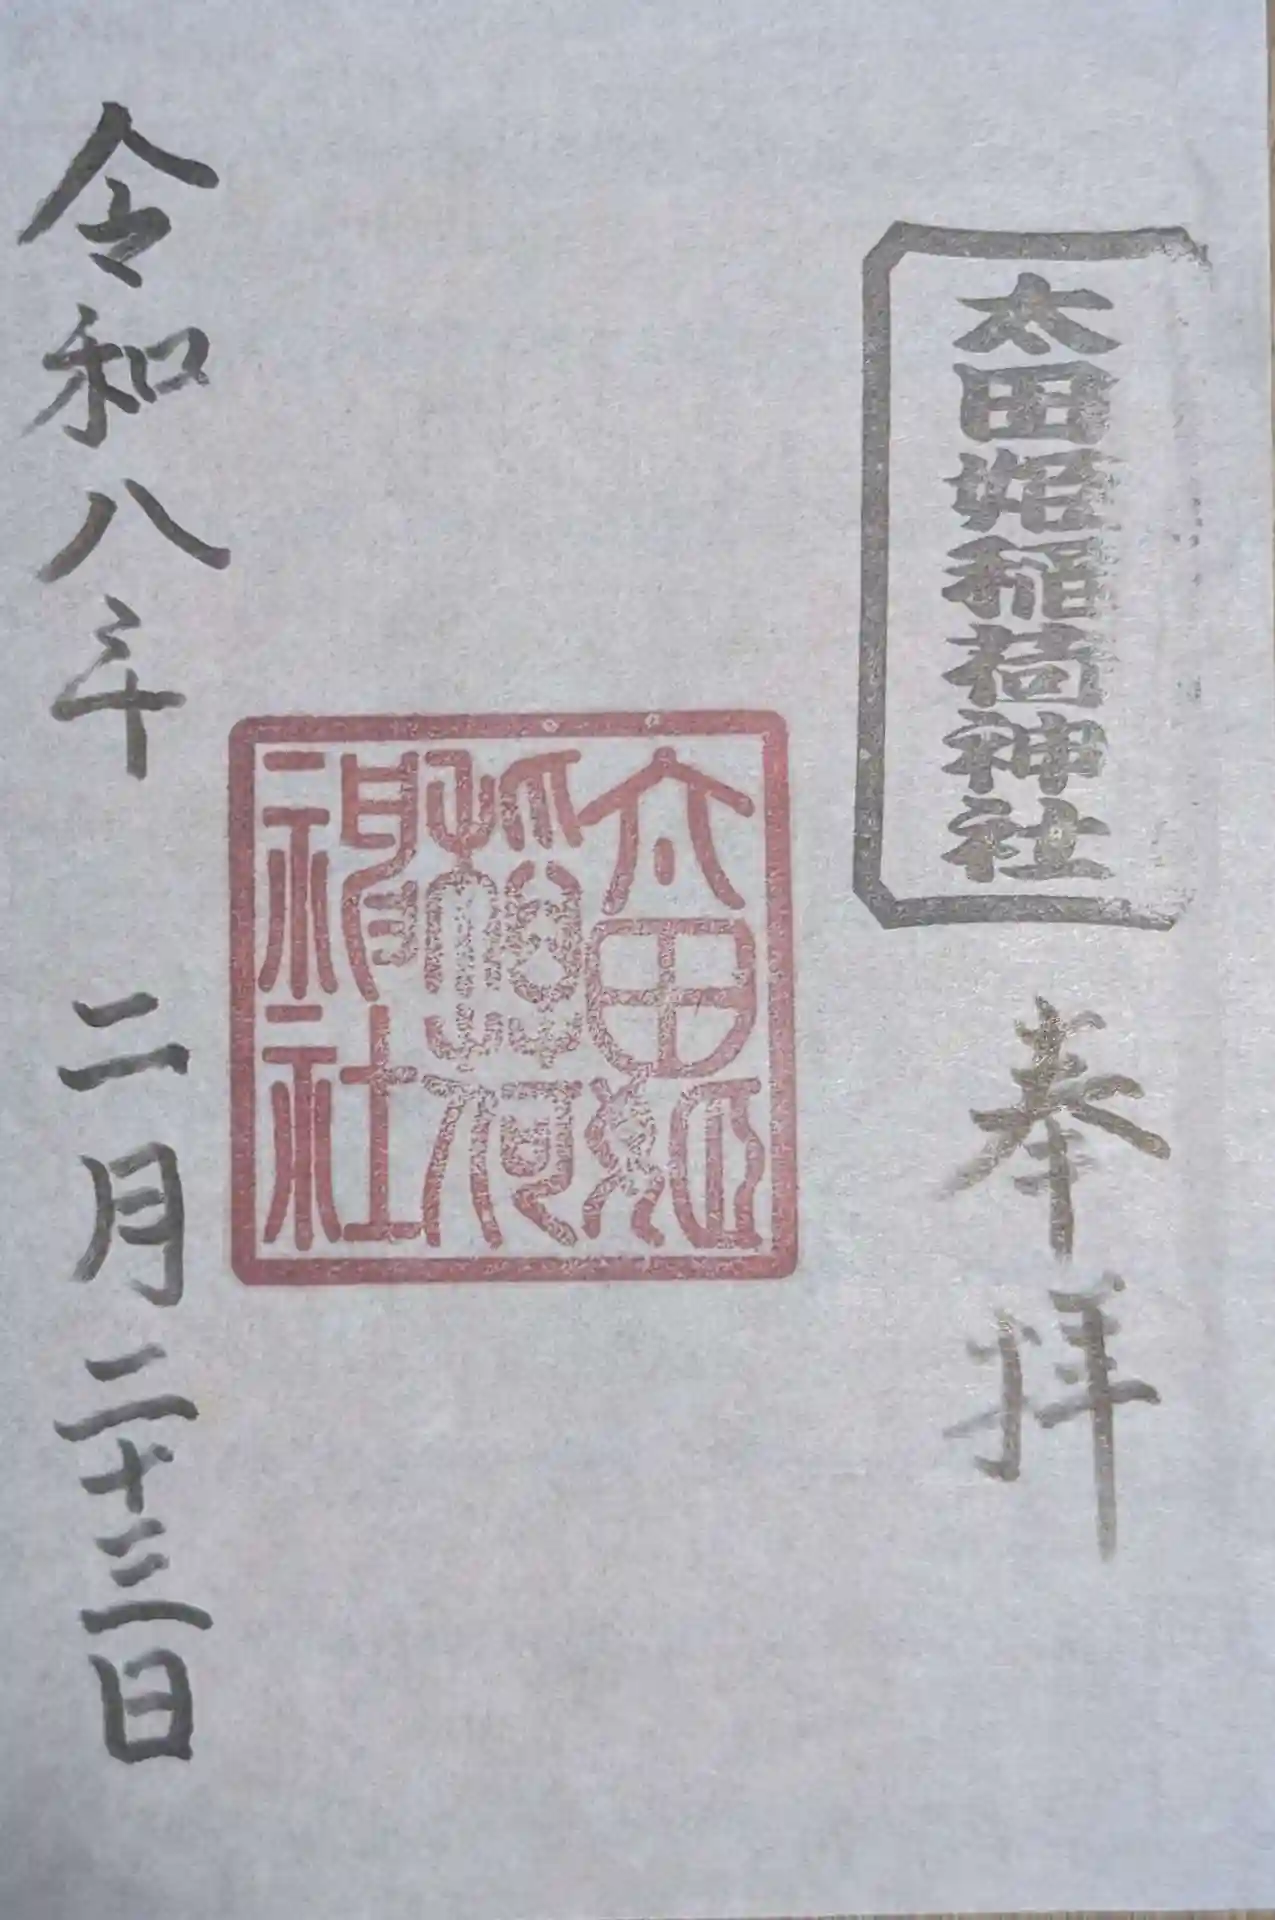 太田姫稲荷神社
奉拝
太田姫
稲荷
神社
令和八年 二月二十三日